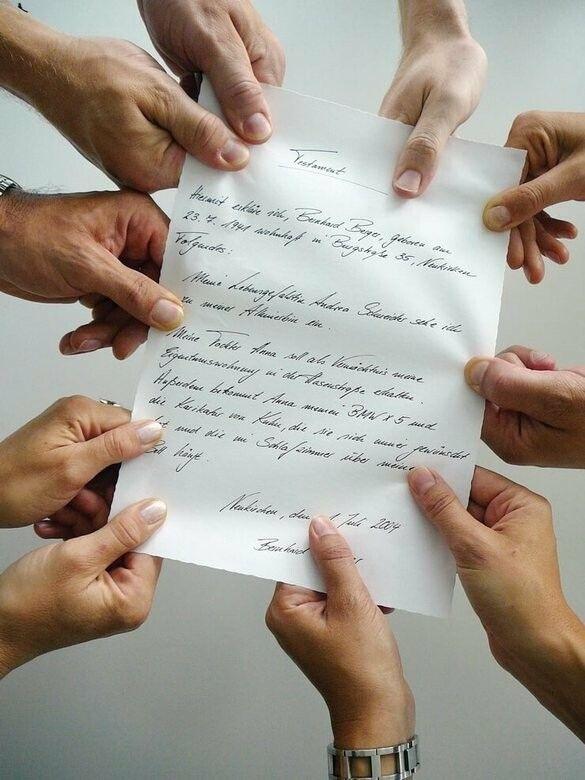 Testament
Hiermit erkläre ich, Bernhard Beyer, geboren am
23. 7. 1941 wohnhaft in Burgstraße 35, Neukirchen
Folgendes:
Meine Lebensgefährtin Andrea Schneider setze ich
zu meiner Alleinerbin ein.
Meine Tochter Anna soll als Vermächtnis meine
Eigentumswohnung in der Hasenstraße erhalten.
Außerdem bekommt Anna meinen BMW X 5 und
die Karikatur von Kuhn, die sie sich immer gewünscht
hat und die im Schlafzimmer über meinem
Bett hängt.
Neukirchen, den Juli 2004
Bernhard